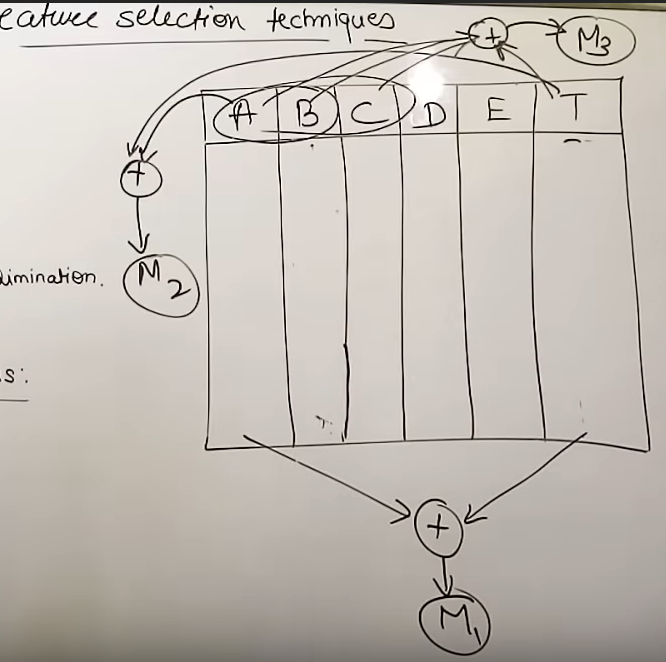 eature selection techniques
+
M3
A B C D E T
+
M2
limination.
s:
+
M1